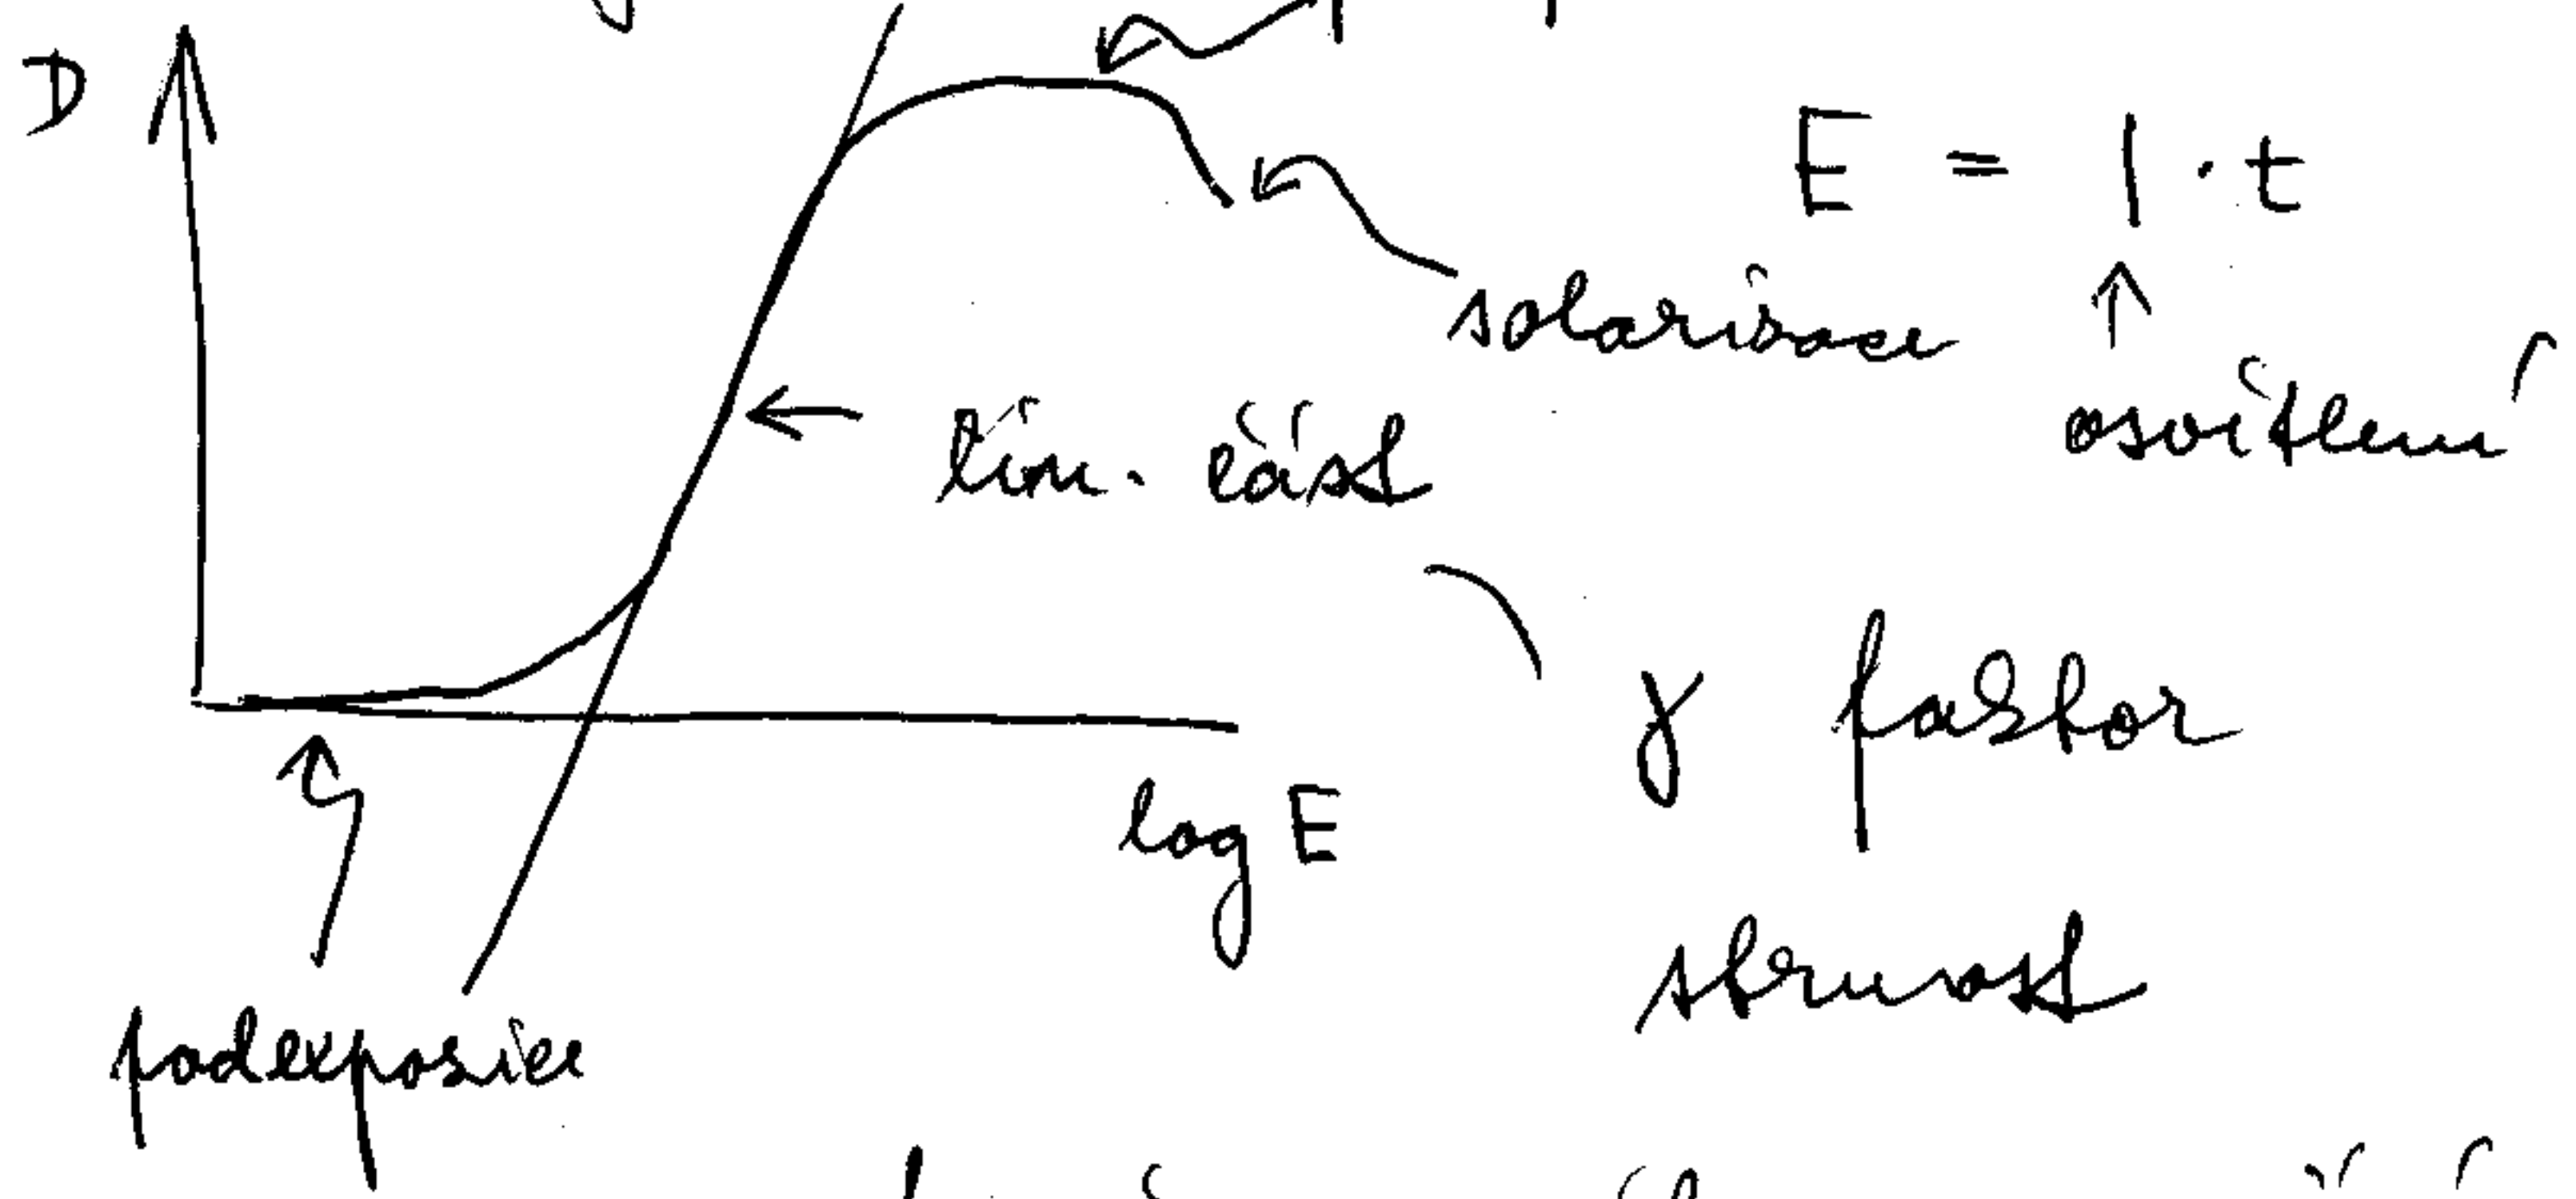 D
E = I · t
solarisace
osvitlení
lin. část
γ faktor
log E
strmost
podexposice